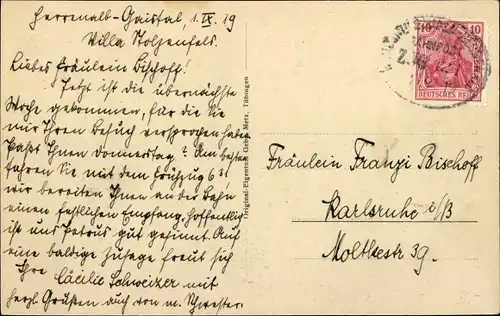 Herrenalb-Gaistal 1. IX. 19
Villa Stolzenfels.
Liebes Fräulein Bischoff!
Jetzt ist die übernächste
Woche gekommen, für die Sie
mir Ihren Besuch versprochen haben.
Paßt Ihnen Donnerstag? Am besten
fahren Sie mit dem Frühzug 6
wir bereiten Ihnen an der Bahn
einen festlichen Empfang, hoffentlich
ist uns Petrus gut gesinnt. Auf
eine baldige Zusage freut sich
Ihre Cäcilie Schweizer mit
herzl. Grüßen auch von m. Schwester.
Original-Eigentum Gebr. Metz, Tübingen
10 10
DEUTSCHES REICH
BAHNPOST
Fräulein Franzi Bischoff
Karlsruhe i/B
Moltkestr 39.